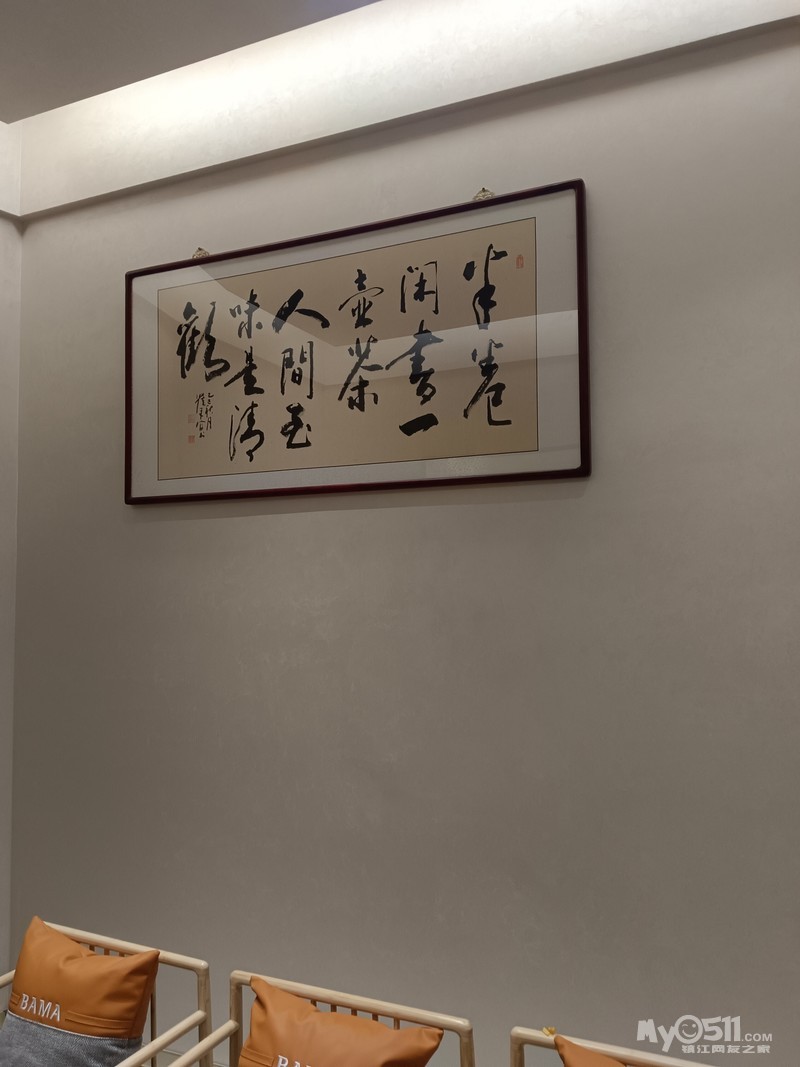 半卷
闲書一
壺茶
人間至
味是清
歡
BAMA
BA
My0511.COM
镇江网友之家